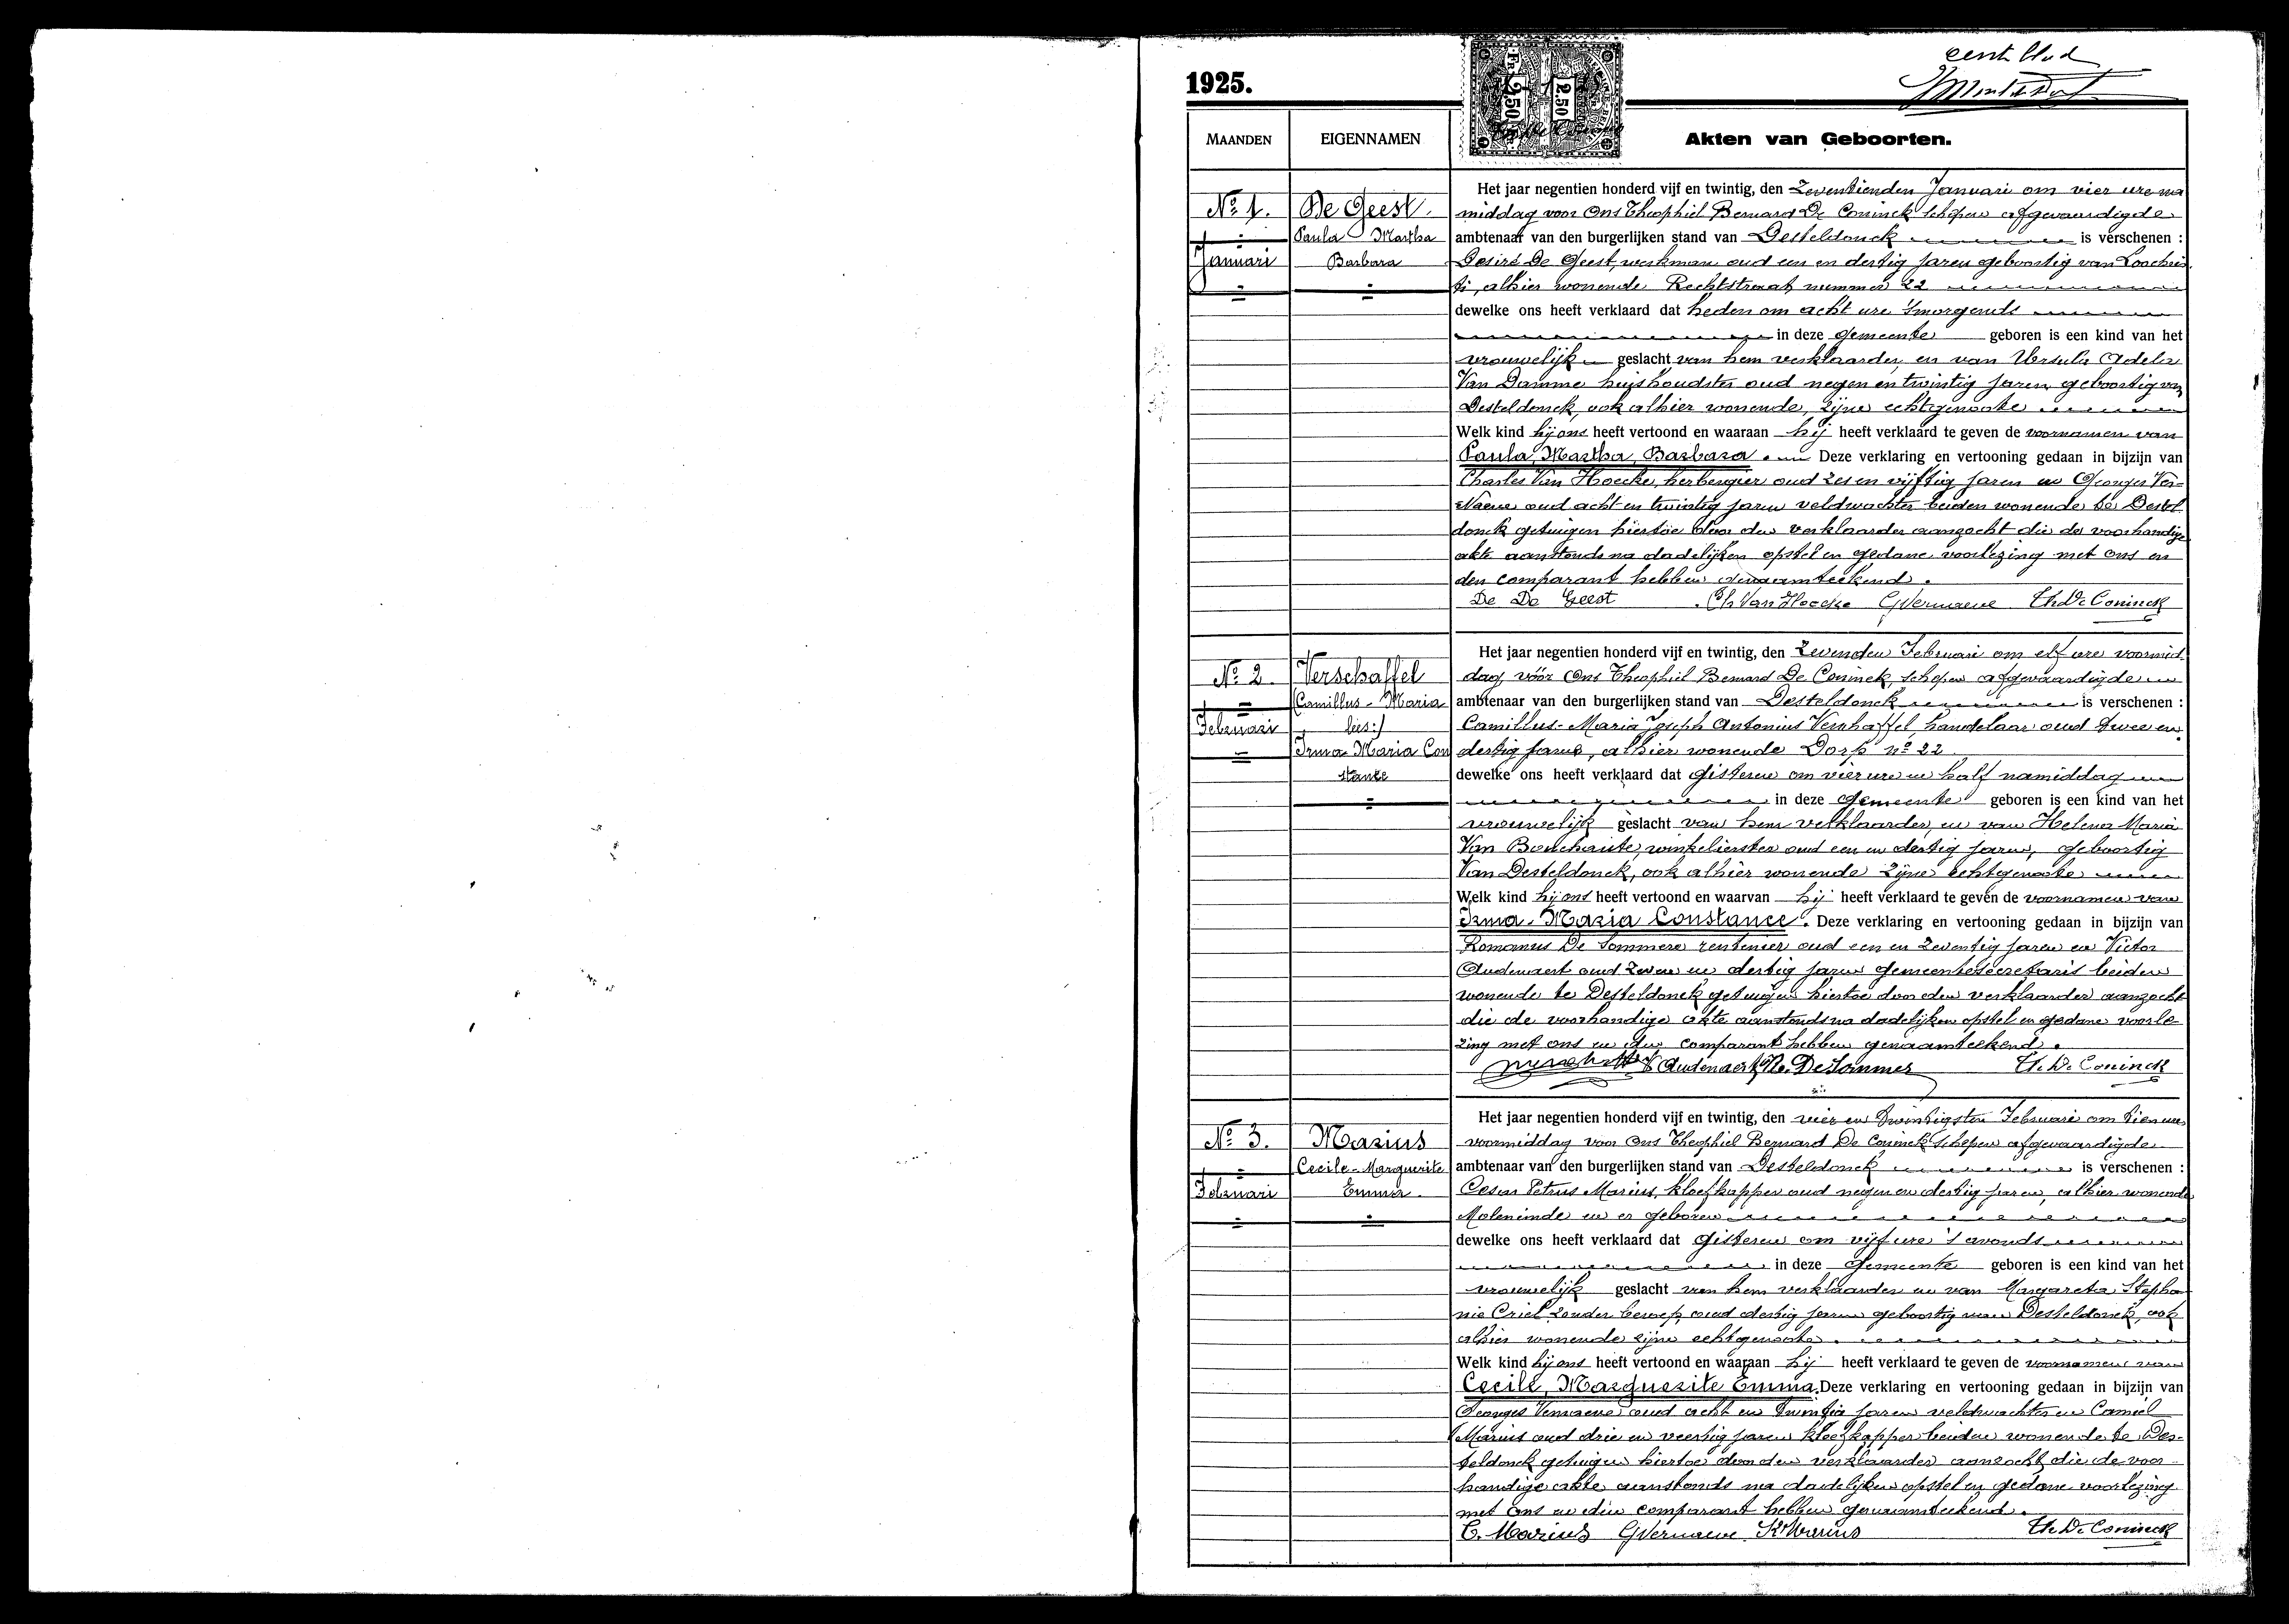 eerste blad
1925.
FR 2.50
2.50 FR
MAANDEN
EIGENNAMEN
Akten van Geboorten.
No 1.
Januari
De Geest
Paula Martha
Barbara
Het jaar negentien honderd vijf en twintig, den Zeventienden Januari om vier ure na
middag voor Ons Theophiel Bernard De Coninck schepen afgevaardigde
ambtenaar van den burgerlijken stand van Desteldonck is verschenen :
Desiré De Geest, werkman oud een en dertig jaren geboortig van Loochris
ti, alhier wonende Rechtstraat, nummer 22
dewelke ons heeft verklaard dat heden om acht ure 'smorgends
in deze gemeente geboren is een kind van het
vrouwelijk geslacht van hem verklaarder, en van Ursula Adela
Van Damme huishoudster oud negen en twintig jaren, geboortig van
Desteldonck, ook alhier wonende, zijne echtgenoote
Welk kind hij ons heeft vertoond en waaraan hij heeft verklaard te geven de voornamen van
Paula, Martha, Barbara. Deze verklaring en vertooning gedaan in bijzijn van
Charles Van Hoecke, herbergier oud zes en vijftig jaren en Georges Ver-
naeve oud acht en twintig jaren veldwachter beiden wonende te Destel
donck getuigen hiertoe door den verklaarder aanzocht die de voorhandige
akte aanstonds na dadelijken opstel en gedane voorlezing met ons en
den comparant hebben genaamteekend.
De De Geest Ch Van Hoecke G Vernaeve Th. De Coninck
No 2
Februari
Verschaffel
(Camillus-Maria
lees:)
Irma-Maria Con
stance
Het jaar negentien honderd vijf en twintig, den Zevenden Februari om elf ure voormid
dag vóór Ons Theophiel Bernard De Coninck, schepen afgevaardigde
ambtenaar van den burgerlijken stand van Desteldonck is verschenen :
Camillus-Maria Joseph Antonius Verschaffel, handelaar oud twee en
dertig jaren, alhier wonende Dorp no 22
dewelke ons heeft verklaard dat gisteren om vier ure en half namiddag
in deze gemeente geboren is een kind van het
vrouwelijk geslacht van hem verklaarder, en van Helena Maria
Van Bouchaute, winkelierster oud een en dertig jaren, geboortig
Van Desteldonck, ook alhier wonende zijne echtgenoote
Welk kind hij ons heeft vertoond en waarvan hij heeft verklaard te geven de voornamen van
Irma-Maria Constance. Deze verklaring en vertooning gedaan in bijzijn van
Romanus De Sommere rentenier oud een en zeventig jaren en Victor
Audenaert oud zeven en dertig jaren gemeentesecretaris beiden
wonende te Desteldonck getuigen hiertoe door den verklaarder aanzocht
die de voorhandige akte aanstonds na dadelijken opstel en gedane voorle
zing met ons en den comparant hebben genaamteekend.
V Audenaert De Sommer Th. De Coninck
No 3.
Februari
Marius
Cecile-Marguerite
Emma
Het jaar negentien honderd vijf en twintig, den vier en twintigsten Februari om tien ure
voormiddag voor Ons Theophiel Bernard De Coninck schepen afgevaardigde
ambtenaar van den burgerlijken stand van Desteldonck is verschenen :
Cesar Petrus Marius, kloefkapper oud negen en dertig jaren, alhier wonende
Moleneinde en er geboren
dewelke ons heeft verklaard dat gisteren om vijf ure 's avonds
in deze gemeente geboren is een kind van het
vrouwelijk geslacht van hem verklaarder en van Margareta Stepha
nie Criel zonder beroep, oud dertig jaren geboortig van Desteldonck, ook
alhier wonende zijne echtgenoote.
Welk kind hij ons heeft vertoond en waaraan hij heeft verklaard te geven de voornamen van
Cecile, Marguerite Emma. Deze verklaring en vertooning gedaan in bijzijn van
Georges Vernaeve oud acht en twintig jaren veldwachter en Camiel
Marius oud drie en veertig jaren kloefkapper beiden wonende te Des-
teldonck getuigen hiertoe door den verklaarder aanzocht, die de voor-
handige akte aanstonds na dadelijken opstel en gedane voorlezing
met ons en den comparant hebben genaamteekend.
C. Marius G Vernaeve Marius Th. De Coninck